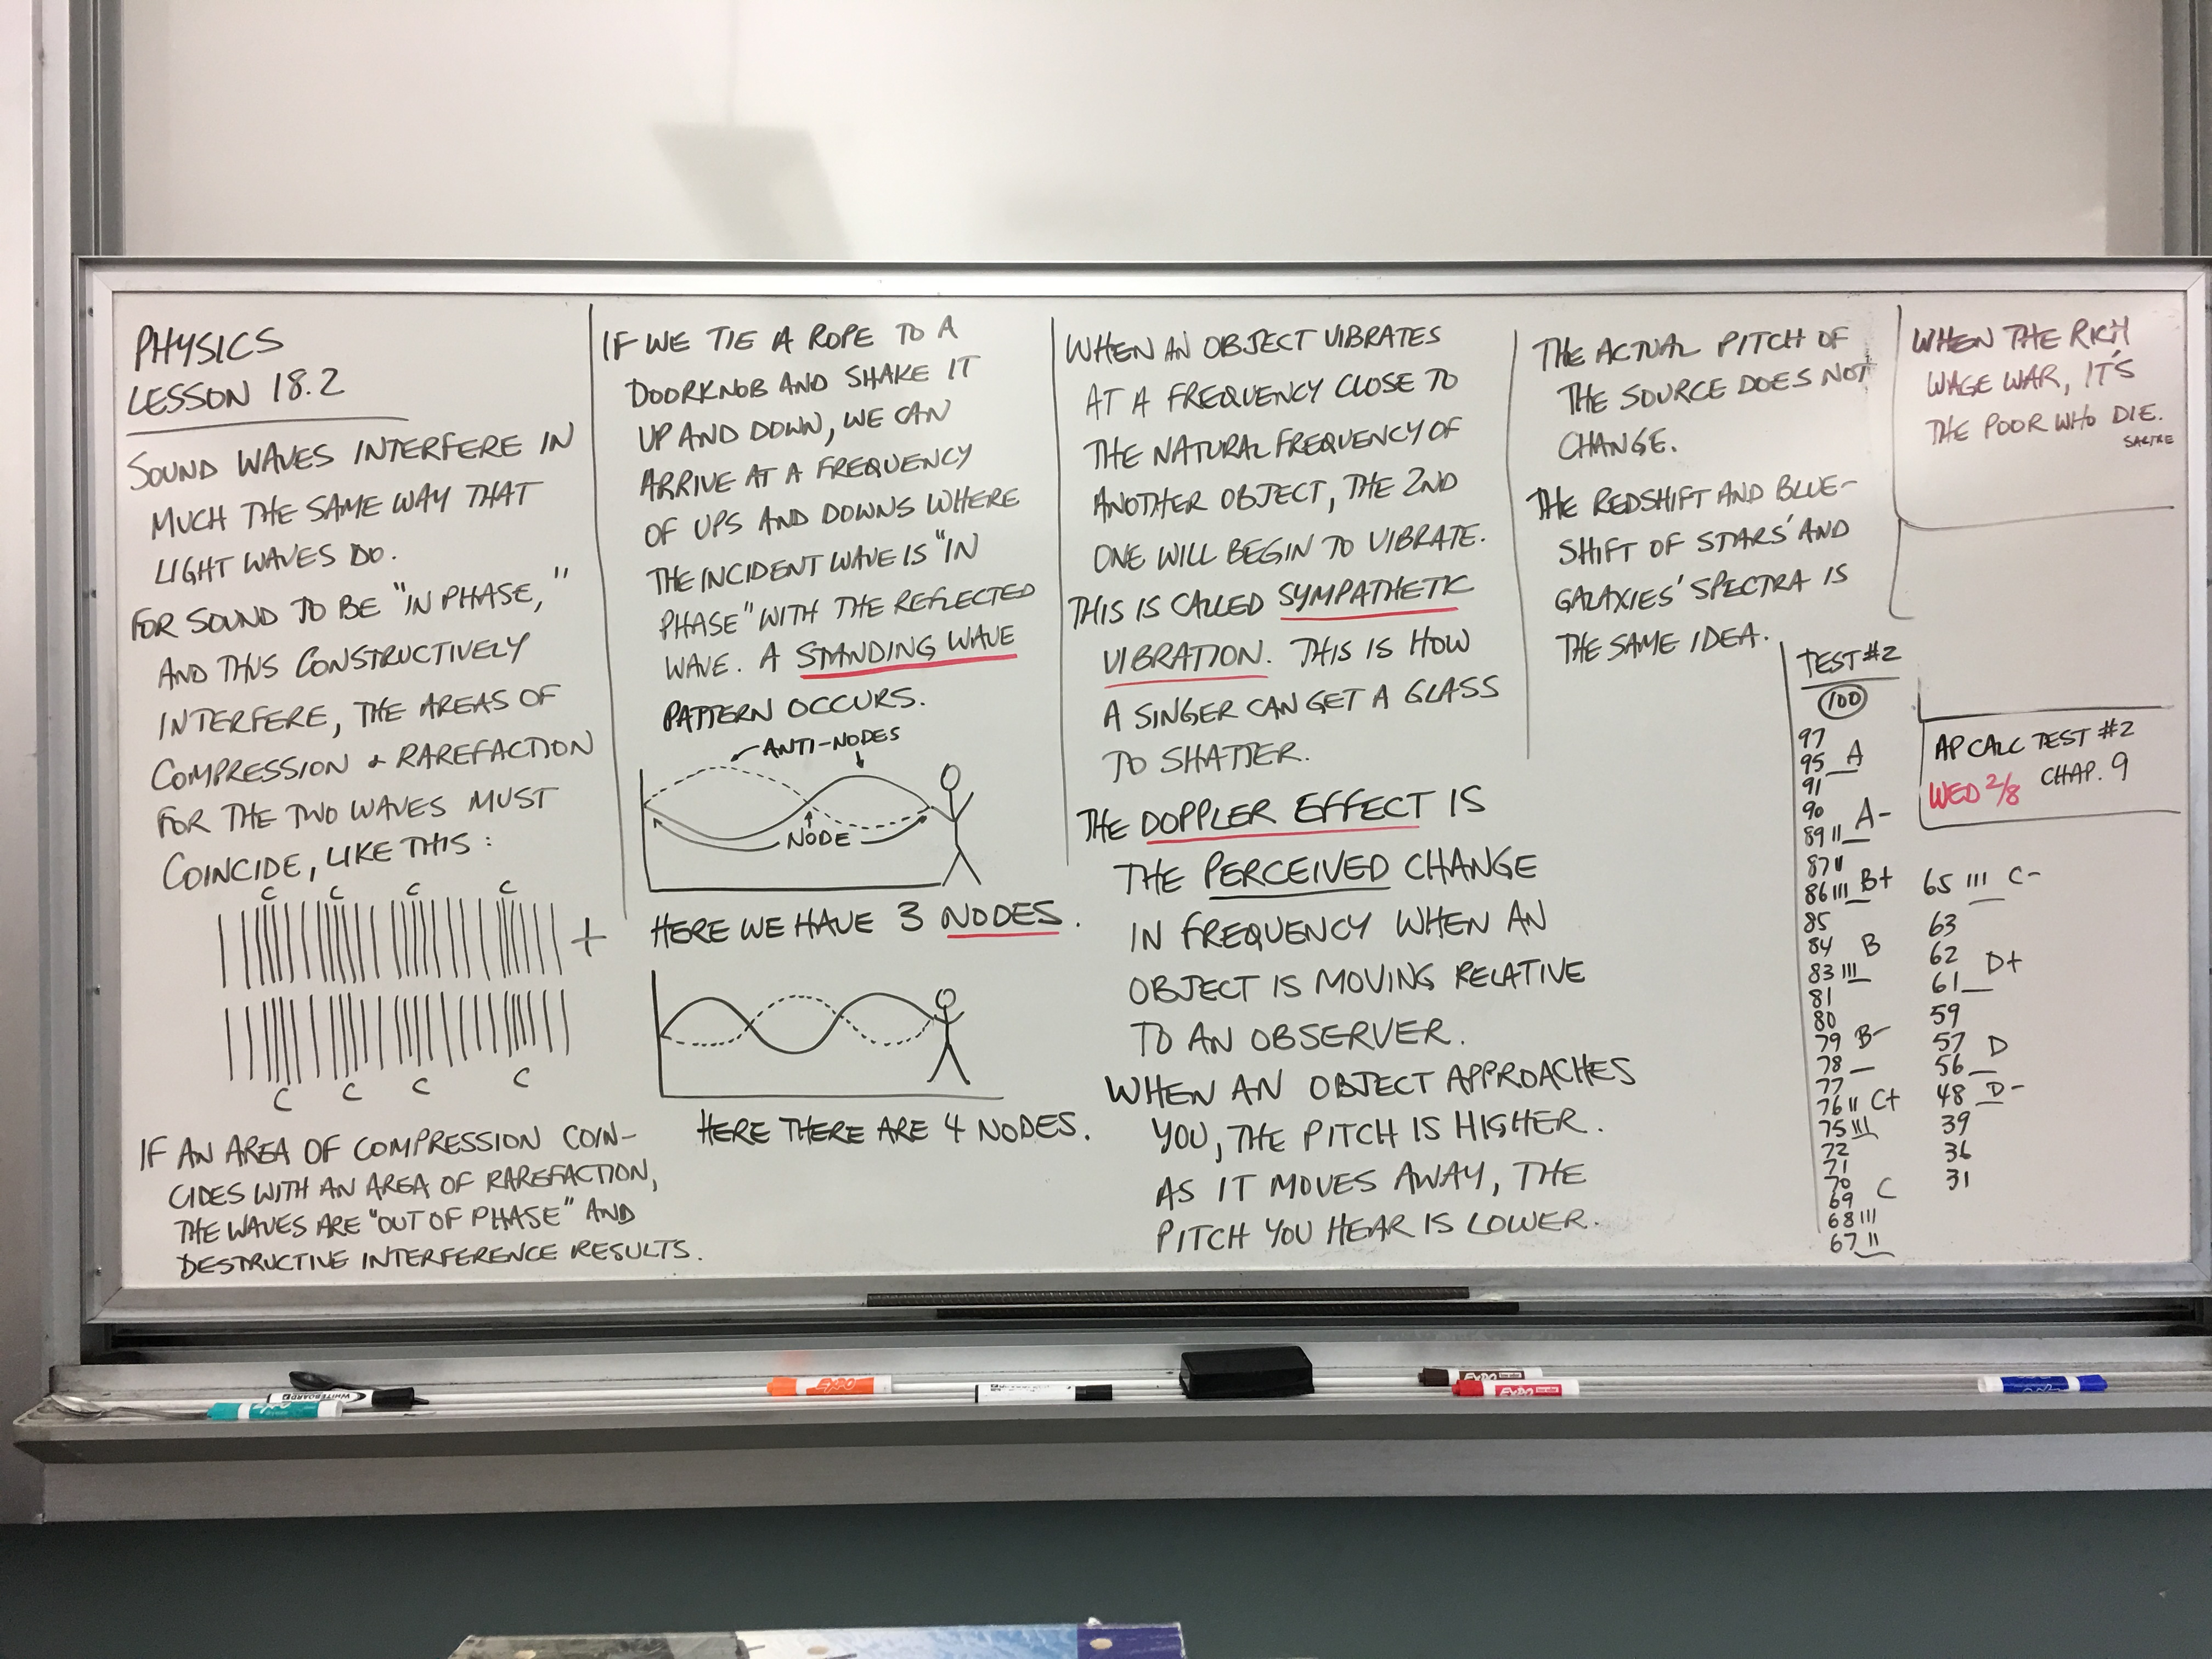 PHYSICS
LESSON 18.2
SOUND WAVES INTERFERE IN
MUCH THE SAME WAY THAT
LIGHT WAVES DO.
FOR SOUND TO BE "IN PHASE,"
AND THUS CONSTRUCTIVELY
INTERFERE, THE AREAS OF
COMPRESSION & RAREFACTION
FOR THE TWO WAVES MUST
COINCIDE, LIKE THIS:
C C C C
+
C C C C
IF AN AREA OF COMPRESSION COIN-
CIDES WITH AN AREA OF RAREFACTION,
THE WAVES ARE "OUT OF PHASE" AND
DESTRUCTIVE INTERFERENCE RESULTS.
IF WE TIE A ROPE TO A
DOORKNOB AND SHAKE IT
UP AND DOWN, WE CAN
ARRIVE AT A FREQUENCY
OF UPS AND DOWNS WHERE
THE INCIDENT WAVE IS "IN
PHASE" WITH THE REFLECTED
WAVE. A STANDING WAVE
PATTERN OCCURS.
ANTI-NODES
NODE
HERE WE HAVE 3 NODES.
HERE THERE ARE 4 NODES.
WHEN AN OBJECT VIBRATES
AT A FREQUENCY CLOSE TO
THE NATURAL FREQUENCY OF
ANOTHER OBJECT, THE 2ND
ONE WILL BEGIN TO VIBRATE.
THIS IS CALLED SYMPATHETIC
VIBRATION. THIS IS HOW
A SINGER CAN GET A GLASS
TO SHATTER.
THE DOPPLER EFFECT IS
THE PERCEIVED CHANGE
IN FREQUENCY WHEN AN
OBJECT IS MOVING RELATIVE
TO AN OBSERVER.
WHEN AN OBJECT APPROACHES
YOU, THE PITCH IS HIGHER.
AS IT MOVES AWAY, THE
PITCH YOU HEAR IS LOWER.
THE ACTUAL PITCH OF
THE SOURCE DOES NOT
CHANGE.
THE REDSHIFT AND BLUE-
SHIFT OF STARS' AND
GALAXIES' SPECTRA IS
THE SAME IDEA.
TEST #2
100
97
95 A
91
90 A-
89 II
87 II
86 III B+
85
84 B
83 III
81
80
79 B-
78
77
76 II C+
75 III
72
71
70 C
69
68 III
67 II
WHEN THE RICH
WAGE WAR, IT'S
THE POOR WHO DIE.
SARTRE
AP CALC TEST #2
WED 2/8 CHAP. 9
65 III C-
63
62 D+
61
59
57 D
56
48 D-
39
36
31
WHITEBOARD
EXPO
EXPO
EXPO
EXPO